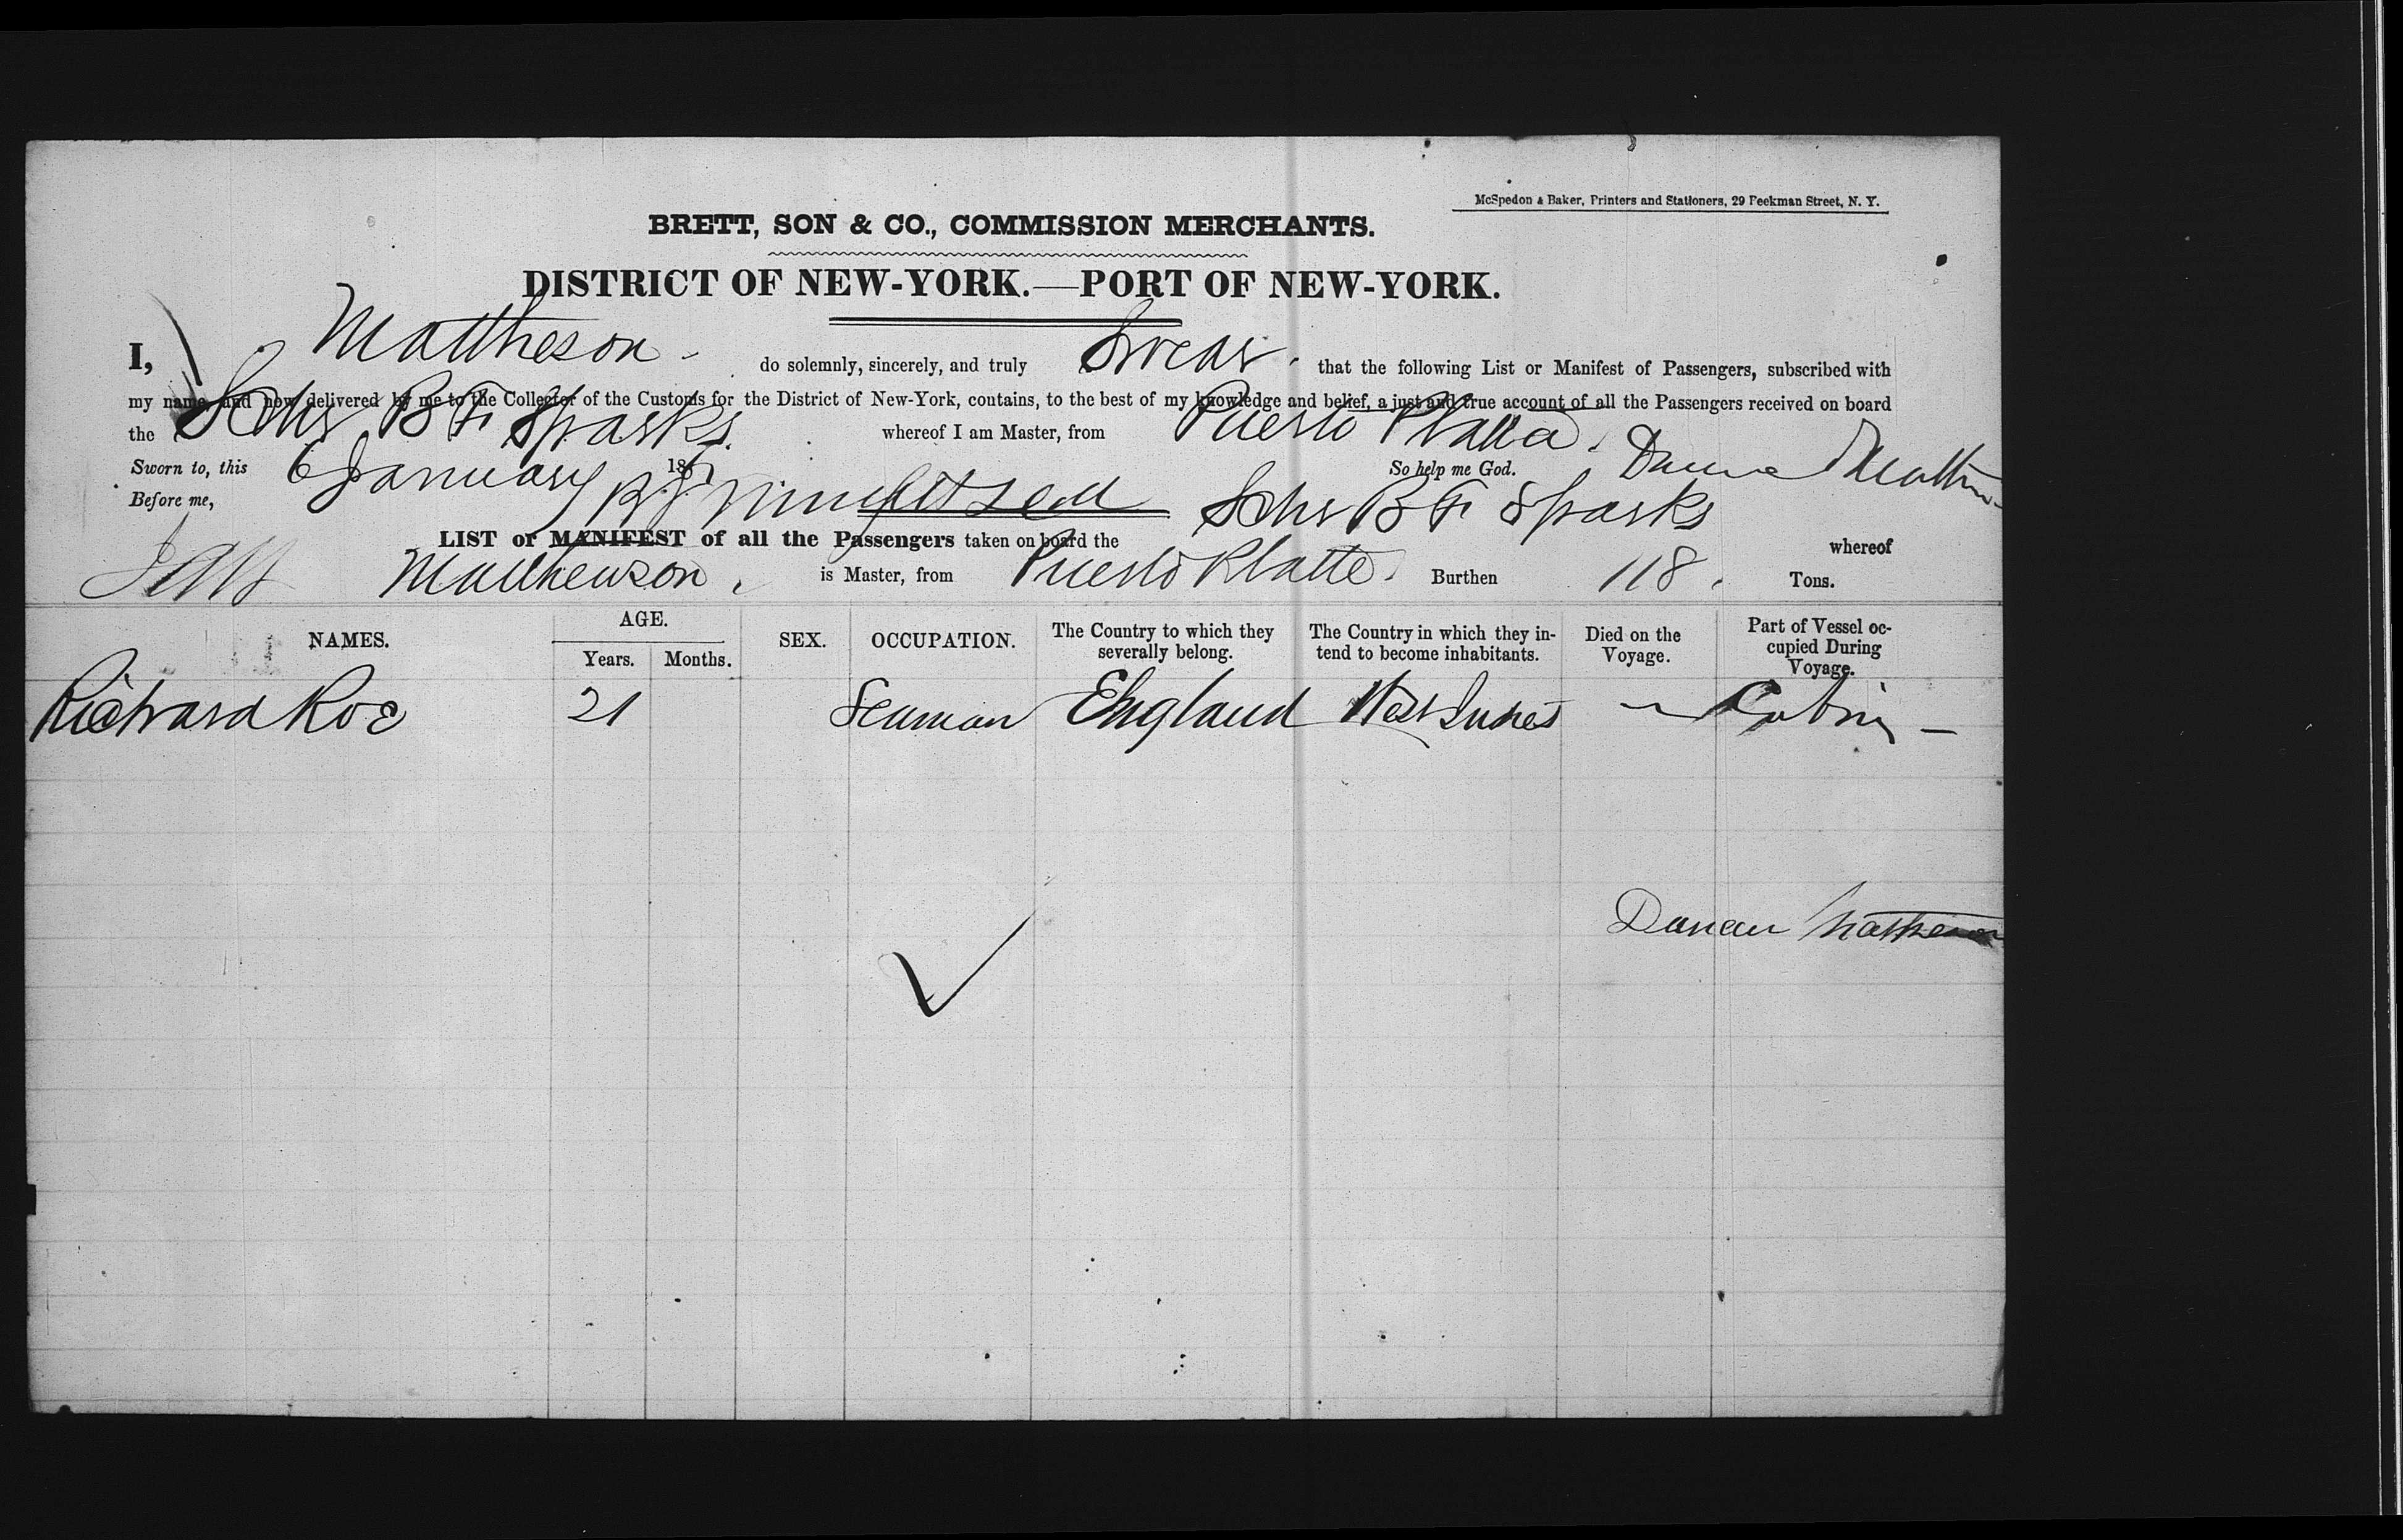 McSpedon & Baker, Printers and Stationers, 29 Beekman Street, N. Y.
BRETT, SON & CO., COMMISSION MERCHANTS.
DISTRICT OF NEW-YORK.—PORT OF NEW-YORK.
I, Mattheson do solemnly, sincerely, and truly Swear that the following List or Manifest of Passengers, subscribed with
my name, and now delivered by me to the Collector of the Customs for the District of New-York, contains, to the best of my knowledge and belief, a just and true account of all the Passengers received on board
the Schr B F Sparks. whereof I am Master, from Puerto Platta.
Sworn to, this 6 January 18 So help me God.
Before me,
LIST or MANIFEST of all the Passengers taken on board the Schr B F Sparks whereof
Matthewson is Master, from Puerto Platte. Burthen 118. Tons.
NAMES. AGE. Years. Months. SEX. OCCUPATION. The Country to which they severally belong. The Country in which they intend to become inhabitants. Died on the Voyage. Part of Vessel occupied During Voyage.
Richard Roe 21 Seaman England West Indies Cabin
Duncan Matheson